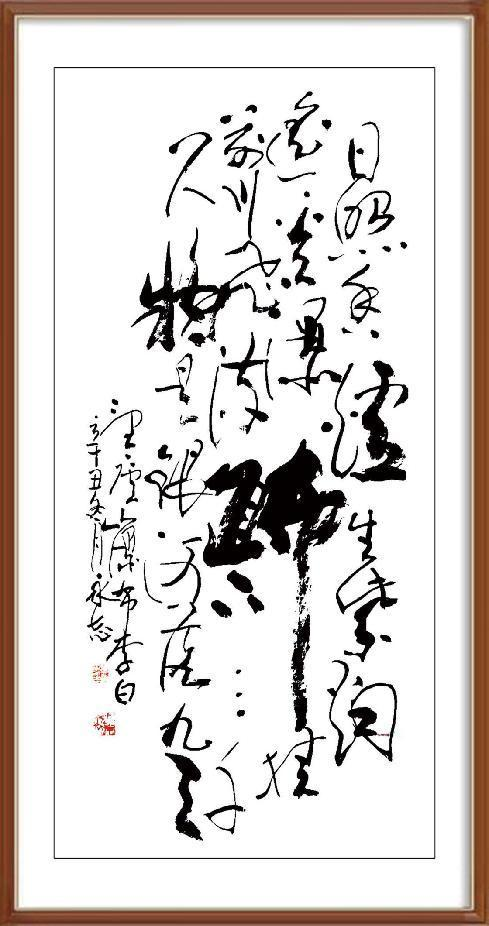 日照香爐生紫烟
遥看瀑布挂
前川飛流直下三千
尺疑是银河落九天
望廬山瀑布李白
辛丑冬月永志